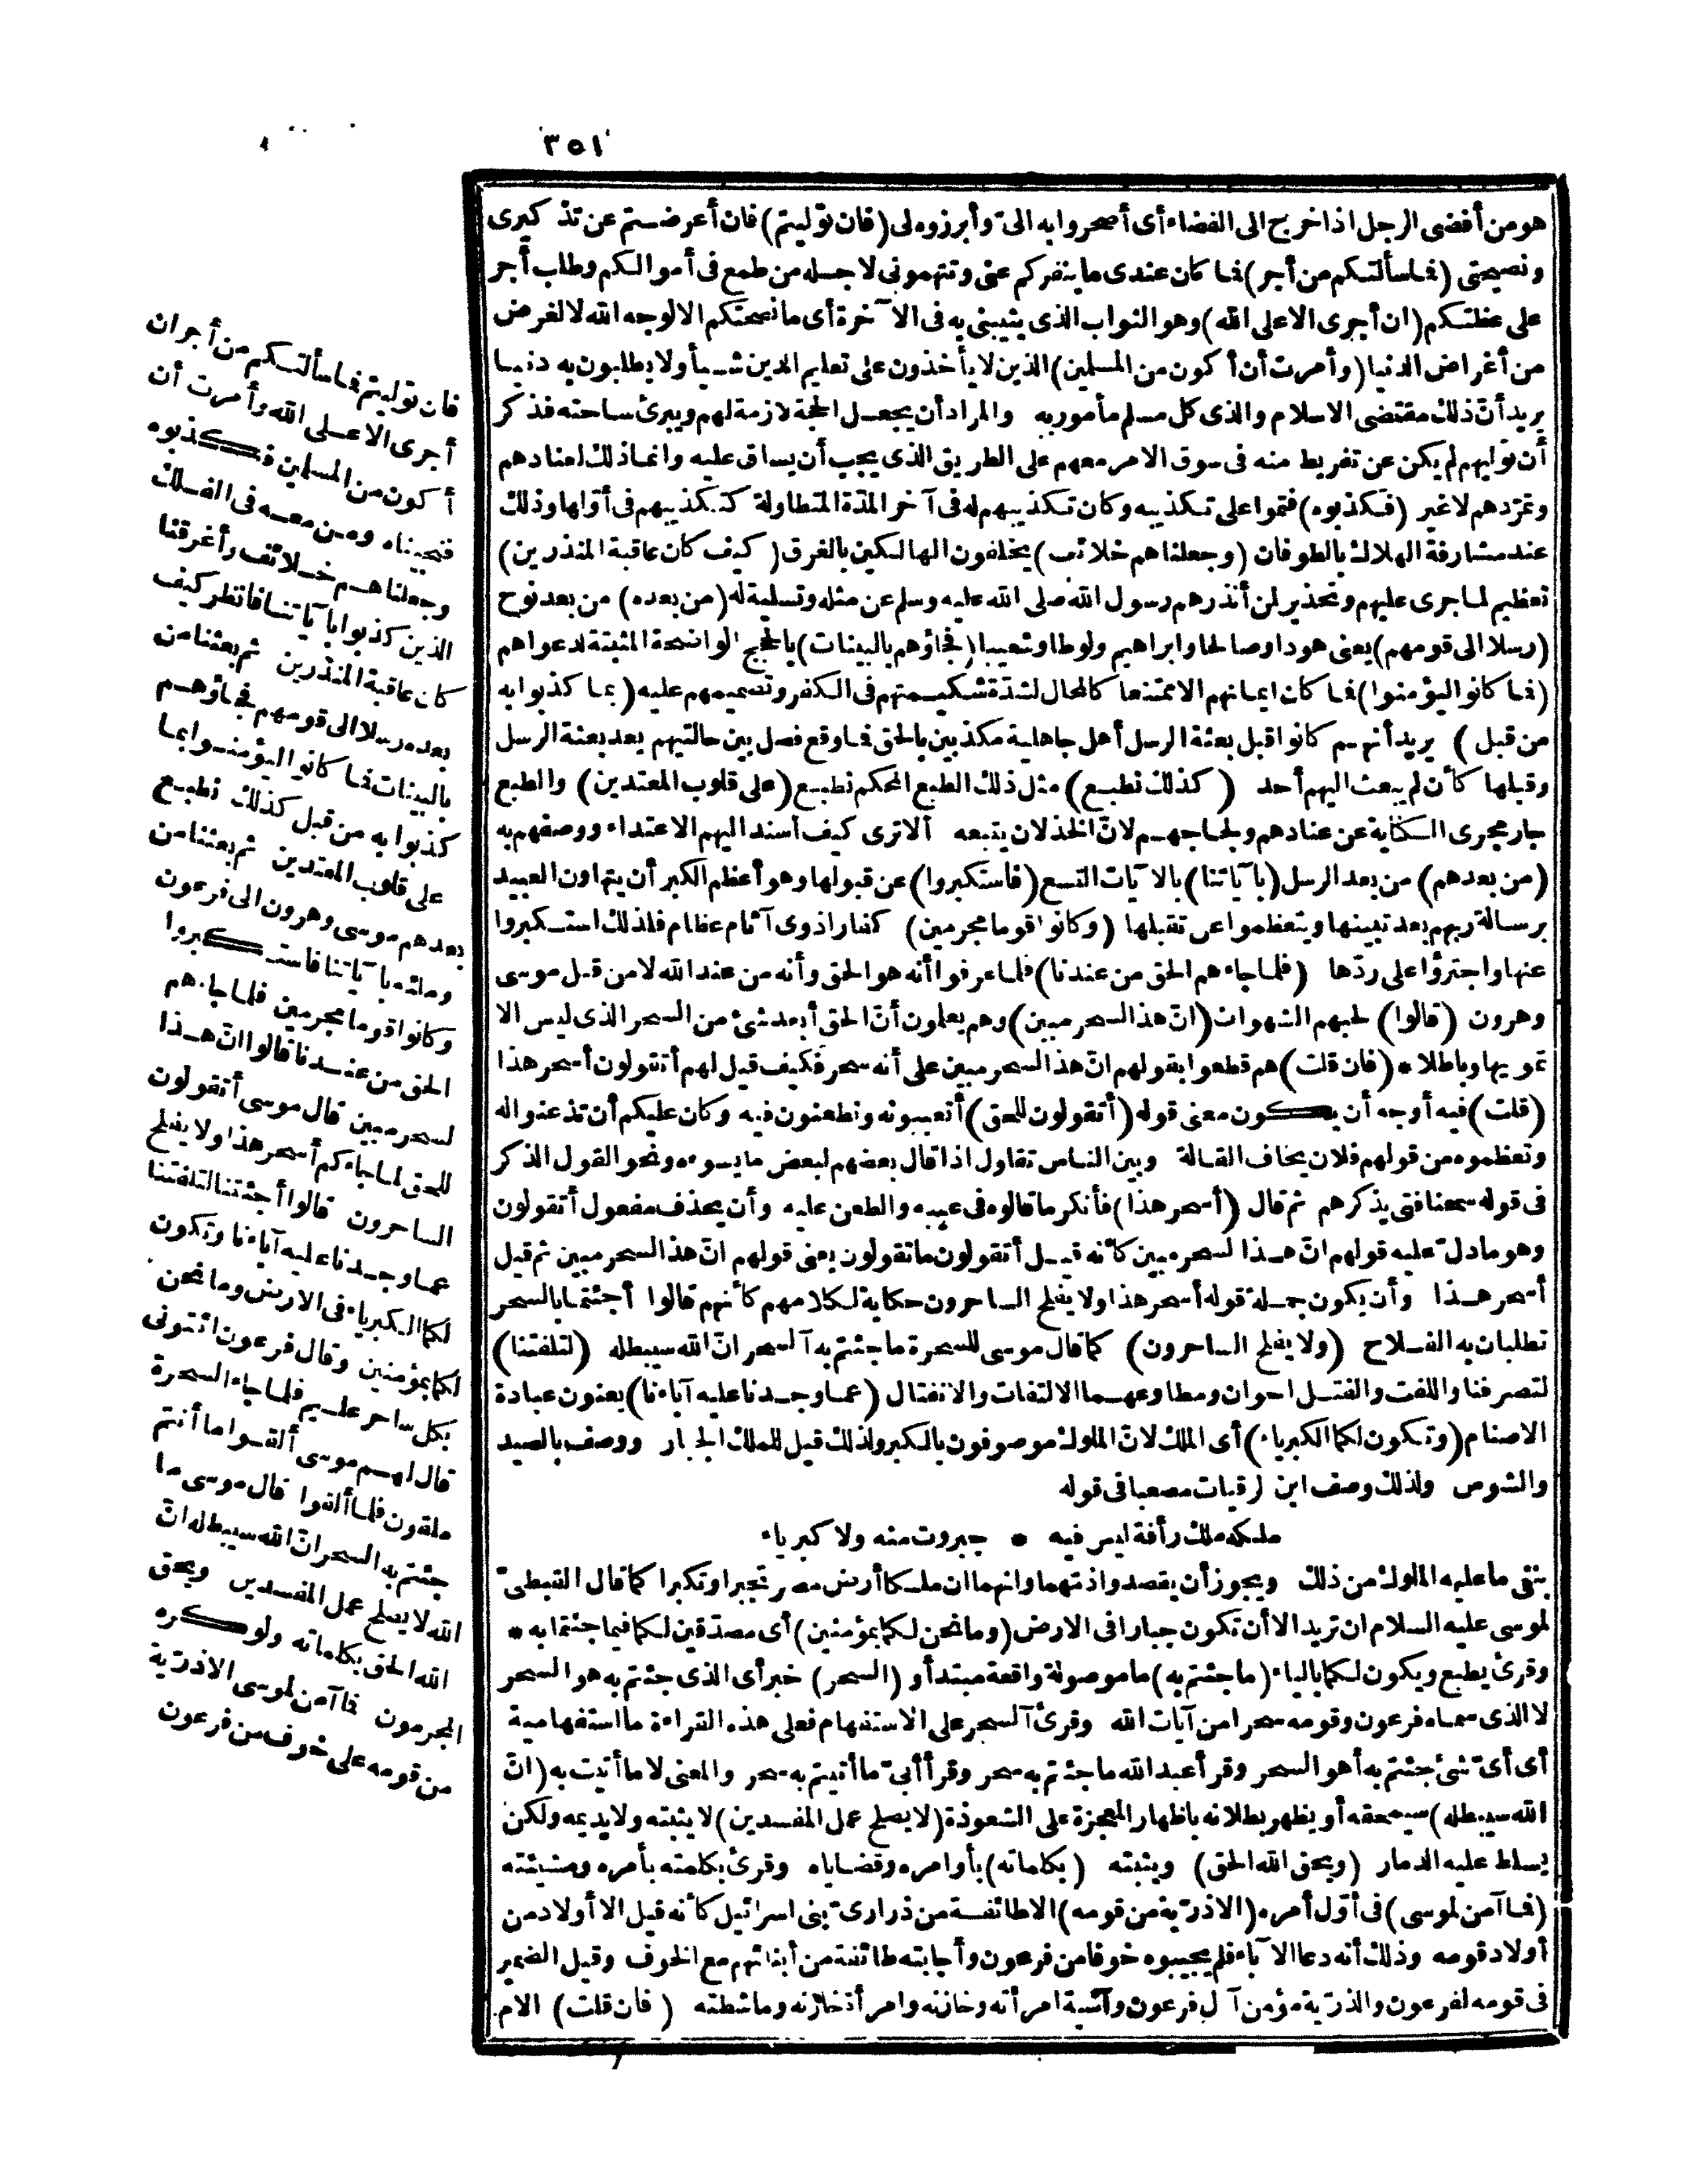 ٣٥١
هو من أفضى الرجل اذا خرج الى الفضاء أى أصحروا به الىّ وأبرزوه لى (فان توليتم) فان أعرضتم عن تذكيرى
ونصيحتى (فما سألتكم من أجر) فما كان عندى ما ينفركم عنى وتتهمونى لاجله من طمع فى أموالكم وطلب أجر
على عظتكم (ان أجرى الا على الله) وهو الثواب الذى يثيبنى به فى الآخرة أى ما نصحتكم الا لوجه الله لا لغرض
من أغراض الدنيا (وأمرت أن أكون من المسلمين) الذين لا يأخذون على تعليم الدين شيأ ولا يطلبون به دنيا
يريد أنّ ذلك مقتضى الاسلام والذى كل مسلم مأمور به والمراد أن يجعل الحجة لازمة لهم ويبرئ ساحته فذكر
أن توليهم لم يكن عن تفريط منه فى سوق الامر معهم على الطريق الذى يجب أن يساق عليه وانما ذلك لعنادهم
وتمرّدهم لا غير (فكذبوه) فتموا على تكذيبه وكان تكذيبهم له فى آخر المدّة المتطاولة كتكذيبهم فى أوّلها وذلك
عند مشارفة الهلاك بالطوفان (وجعلناهم خلائف) يخلفون الهالكين بالغرق (كيف كان عاقبة المنذرين)
تعظيم لما جرى عليهم وتحذير لمن أنذرهم رسول الله صلى الله عليه وسلم عن مثله وتسلية له (من بعده) من بعد نوح
(رسلا الى قومهم) يعنى هودا وصالحا وابراهيم ولوطا وشعيبا (فجاؤهم بالبينات) بالحجج الواضحة المثبتة لدعواهم
(فما كانوا ليؤمنوا) فما كان ايمانهم الا ممتنعا كالمحال لشدّة شكيمتهم فى الكفر وتصميمهم عليه (بما كذبوا به
من قبل) يريد أنهم كانوا قبل بعثة الرسل أهل جاهلية مكذبين بالحق فما وقع فصل بين حالتيهم بعد بعثة الرسل
وقبلها كأن لم يبعث اليهم أحد (كذلك نطبع) مثل ذلك الطبع المحكم نطبع (على قلوب المعتدين) والطبع
جار مجرى الكناية عن عنادهم ولجاجهم لانّ الخذلان يتبعه ألا ترى كيف أسند اليهم الاعتداء ووصفهم به
(من بعدهم) من بعد الرسل (بآياتنا) بالآيات التسع (فاستكبروا) عن قبولها وهو أعظم الكبر أن يتهاون العبيد
برسالة ربهم بعد تبينها ويتعظموا عن تقبلها (وكانوا قوما مجرمين) كفارا ذوى آثام عظام فلذلك استكبروا
عنها واجترؤا على ردّها (فلما جاءهم الحق من عندنا) فلما عرفوا أنه هو الحق وأنه من عند الله لا من قبل موسى
وهرون (قالوا) لحبهم الشهوات (انّ هذا لسحر مبين) وهم يعلمون أنّ الحق أبعد شئ من السحر الذى ليس الا
تمويها وباطلا * (فان قلت) هم قطعوا بقولهم انّ هذا لسحر مبين على أنه سحر فكيف قيل لهم أتقولون أسحر هذا
(قلت) فيه أوجه أن يكون معنى قوله (أتقولون للحق) أتعيبونه وتطعنون فيه وكان عليكم أن تذعنوا له
وتعظموه من قولهم فلان يخاف القالة وبين الناس تقاول اذا قال بعضهم لبعض ما يسوءه ونحو القول الذكر
فى قوله سمعنا فتى يذكرهم ثم قال (أسحر هذا) فأنكر ما قالوه فى عيبه والطعن عليه وأن يحذف مفعول أتقولون
وهو ما دل عليه قولهم انّ هذا لسحر مبين كأنه قيل أتقولون ما تقولون يعنى قولهم انّ هذا لسحر مبين ثم قيل
أسحر هذا وأن يكون جملة قوله أسحر هذا ولا يفلح الساحرون حكاية لكلامهم كأنهم قالوا أجئتما بالسحر
تطلبان به الفلاح (ولا يفلح الساحرون) كما قال موسى للسحرة ما جئتم به آلسحر انّ الله سيبطله (لتلفتنا)
لتصرفنا واللفت والفتل اخوان ومطاوعهما الالتفات والانفتال (عما وجدنا عليه آباءنا) يعنون عبادة
الاصنام (وتكون لكما الكبرياء) أى الملك لانّ الملوك موصوفون بالكبر ولذلك قيل للملك الجبار ووصف بالصيد
والشوس ولذلك وصف ابن الرقيات مصعبا فى قوله
ملكه ملك رأفة ليس فيه * جبروت منه ولا كبرياء
ينفى ما عليه الملوك من ذلك ويجوز أن يقصدوا ذمّهما وانهما ان ملكا أرض مصر تجبرا وتكبرا كما قال القبطىّ
لموسى عليه السلام ان تريد الا أن تكون جبارا فى الارض (وما نحن لكما بمؤمنين) أى مصدّقين لكما فيما جئتما به *
وقرئ يطبع ويكون لكما بالياء (ما جئتم به) ما موصولة واقعة مبتدأ و (السحر) خبر أى الذى جئتم به هو السحر
لا الذى سماه فرعون وقومه سحرا من آيات الله وقرئ آلسحر على الاستفهام فعلى هذه القراءة ما استفهامية
أى أىّ شئ جئتم به أهو السحر وقرأ عبد الله ما جئتم به سحر وقرأ أبىّ ما أتيتم به سحر والمعنى لا ما أتيت به (انّ
الله سيبطله) سيمحقه أو يظهر بطلانه باظهار المعجزة على الشعوذة (لا يصلح عمل المفسدين) لا يثبته ولا يديمه ولكن
يسلط عليه الدمار (ويحق الله الحق) ويثبته (بكلماته) بأوامره وقضاياه وقرئ بكلمته بأمره ومشيئته
(فما آمن لموسى) فى أوّل أمره (الا ذرّية من قومه) الا طائفة من ذرارىّ بنى اسرائيل كأنه قيل الا أولاد من
أولاد قومه وذلك أنه دعا الآباء فلم يجيبوه خوفا من فرعون وأجابته طائفة من أبنائهم مع الخوف وقيل الضمير
فى قومه لفرعون والذرّية مؤمن آل فرعون وآسية امرأته وخازنه وامرأة خازنه وماشطته (فان قلت) الام
فان توليتم فما سألتكم من أجر ان
أجرى الا على الله وأمرت أن
أكون من المسلمين فكذبوه
فنجيناه ومن معه فى الفلك
وجعلناهم خلائف وأغرقنا
الذين كذبوا بآياتنا فانظر كيف
كان عاقبة المنذرين ثم بعثنا من
بعده رسلا الى قومهم فجاؤهم
بالبينات فما كانوا ليؤمنوا بما
كذبوا به من قبل كذلك نطبع
على قلوب المعتدين ثم بعثنا من
بعدهم موسى وهرون الى فرعون
وملئه بآياتنا فاستكبروا
وكانوا قوما مجرمين فلما جاءهم
الحق من عندنا قالوا انّ هذا
لسحر مبين قال موسى أتقولون
للحق لما جاءكم أسحر هذا ولا يفلح
الساحرون قالوا أجئتنا لتلفتنا
عما وجدنا عليه آباءنا وتكون
لكما الكبرياء فى الارض وما نحن
لكما بمؤمنين وقال فرعون ائتونى
بكل ساحر عليم فلما جاء السحرة
قال لهم موسى ألقوا ما أنتم
ملقون فلما ألقوا قال موسى ما
جئتم به السحر انّ الله سيبطله انّ
الله لا يصلح عمل المفسدين ويحق
الله الحق بكلماته ولو كره
المجرمون فما آمن لموسى الا ذرّية
من قومه على خوف من فرعون